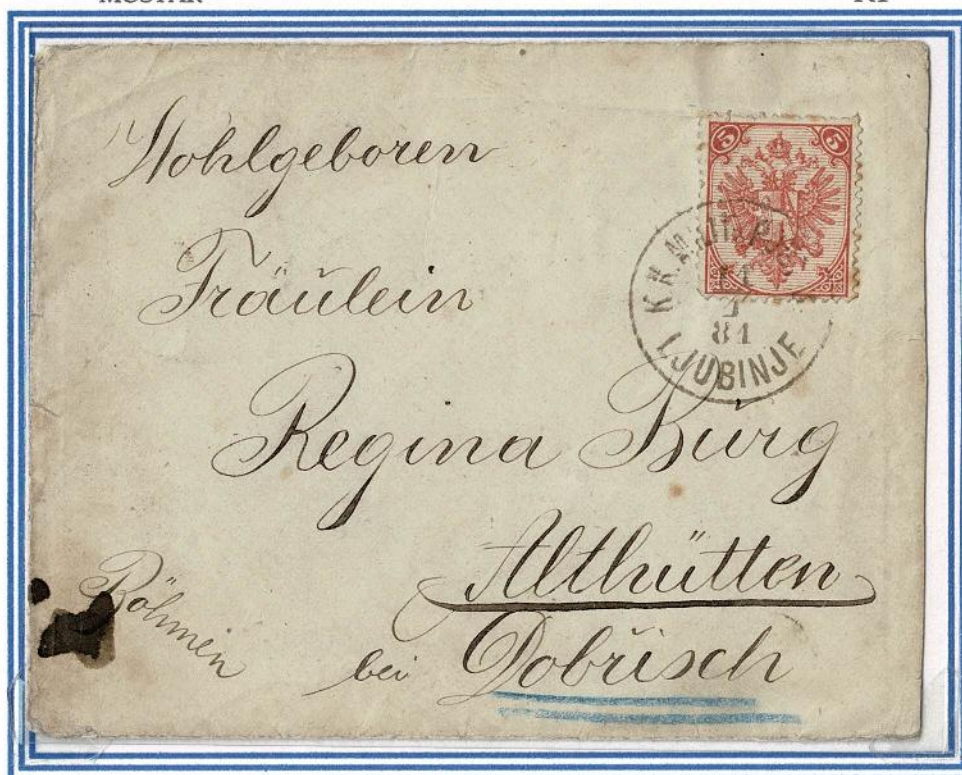 Wohlgeboren
Fräulein
Regina Burg
Althütten
bei Dobřisch
Böhmen
5 5
K.K. MILIT. POST
84
LJUBINJE